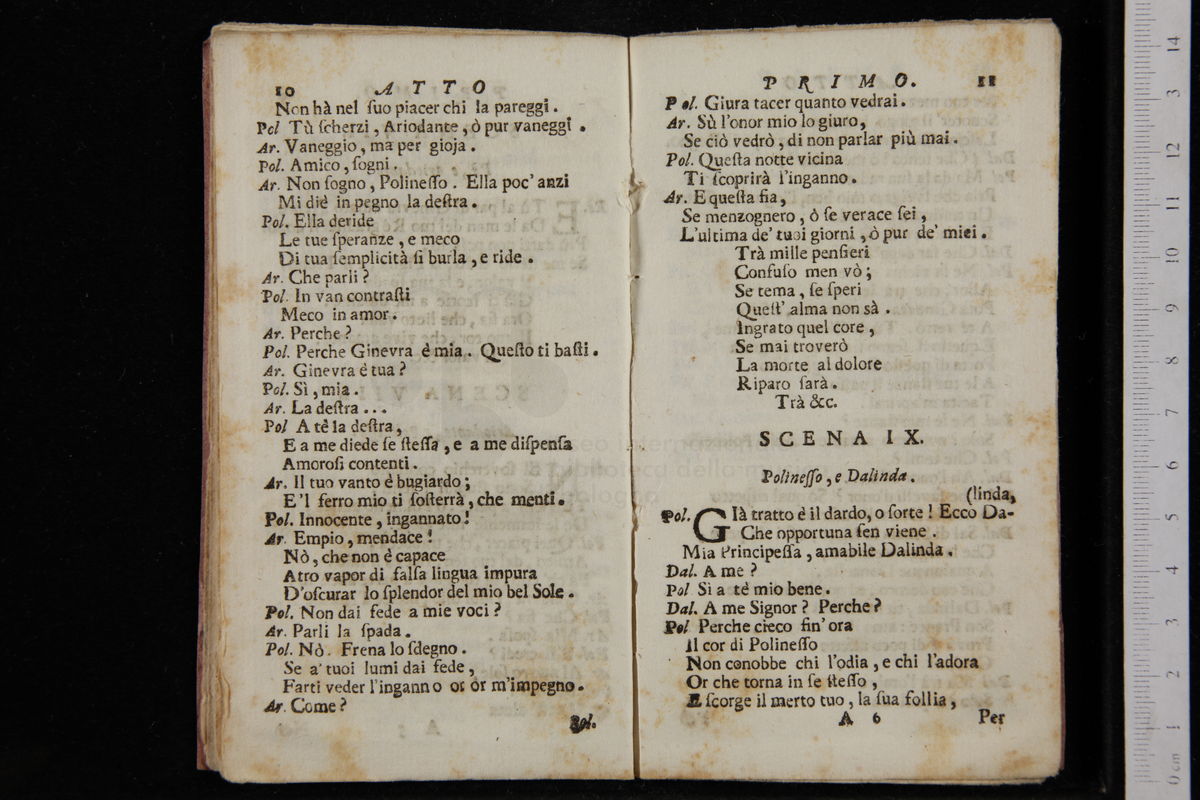 10 ATTO
Non hà nel ſuo piacer chi la pareggi.
Pol Tù ſcherzi, Ariodante, ò pur vaneggi.
Ar. Vaneggio, ma per gioja.
Pol. Amico, ſogni.
Ar. Non ſogno, Polineſſo. Ella poc' anzi
Mi diè in pegno la deſtra.
Pol. Ella deride
Le tue ſperanze, e meco
Di tua ſemplicità ſi burla, e ride.
Ar. Che parli?
Pol. In van contraſti
Meco in amor.
Ar. Perche?
Pol. Perche Ginevra è mia. Queſto ti baſti.
Ar. Ginevra è tua?
Pol. Sì, mia.
Ar. La deſtra...
Pol A tè la deſtra,
E a me diede ſe ſteſſa, e a me diſpenſa
Amoroſi contenti.
Ar. Il tuo vanto è bugiardo;
E'l ferro mio ti ſoſterrà, che menti.
Pol. Innocente, ingannato!
Ar. Empio, mendace!
Nò, che non è capace
Atro vapor di falſa lingua impura
D'oſcurar lo ſplendor del mio bel Sole.
Pol. Non dai fede a mie voci?
Ar. Parli la ſpada.
Pol. Nò. Frena lo ſdegno.
Se a' tuoi lumi dai fede,
Farti veder l'inganno or òr m'impegno.
Ar. Come?
Pol.
PRIMO. 11
Pol. Giura tacer quanto vedrai.
Ar. Sù l'onor mio lo giuro,
Se ciò vedrò, di non parlar più mai.
Pol. Queſta notte vicina
Ti ſcoprirà l'inganno.
Ar. E queſta fia,
Se menzognero, ò ſe verace ſei,
L'ultima de' tuoi giorni, ò pur de' miei.
Trà mille penſieri
Confuſo men vò;
Se tema, ſe ſperi
Queſt' alma non sà.
Ingrato quel core,
Se mai troverò
La morte al dolore
Riparo ſarà.
Trà &c.
SCENA IX.
Polineſſo, e Dalinda.
(linda,
Pol. Già tratto è il dardo, o ſorte! Ecco Da-
Che opportuna ſen viene.
Mia Principeſſa, amabile Dalinda.
Dal. A me?
Pol Sì a tè mio bene.
Dal. A me Signor? Perche?
Pol Perche cieco fin' ora
Il cor di Polineſſo
Non conobbe chi l'odia, e chi l'adora
Or che torna in ſe ſteſſo,
E ſcorge il merto tuo, la ſua follia,
A 6 Per
0 cm 1 2 3 4 5 6 7 8 9 10 11 12 3 14